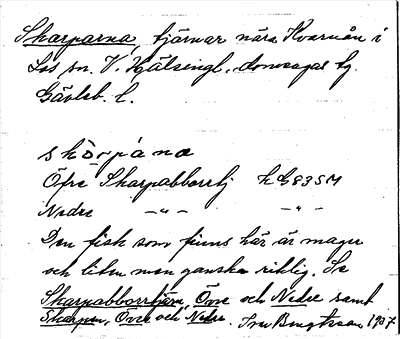 Skarparna, tjärnar nära Kvarnån i
Los sn. V. Hälsingl. domsagas tg.
Gävleb. l.
skö̀rpána
Öfre Skarpabborrtj HG83SM
Nedre -"- -"-
Den fisk som finns här är mager
och liten men ganska riklig. Se
Skarpabborrtjärn, Övre och Nedre samt
Skarpen, Övre och Nedre. Ivar Bengtsson 1937